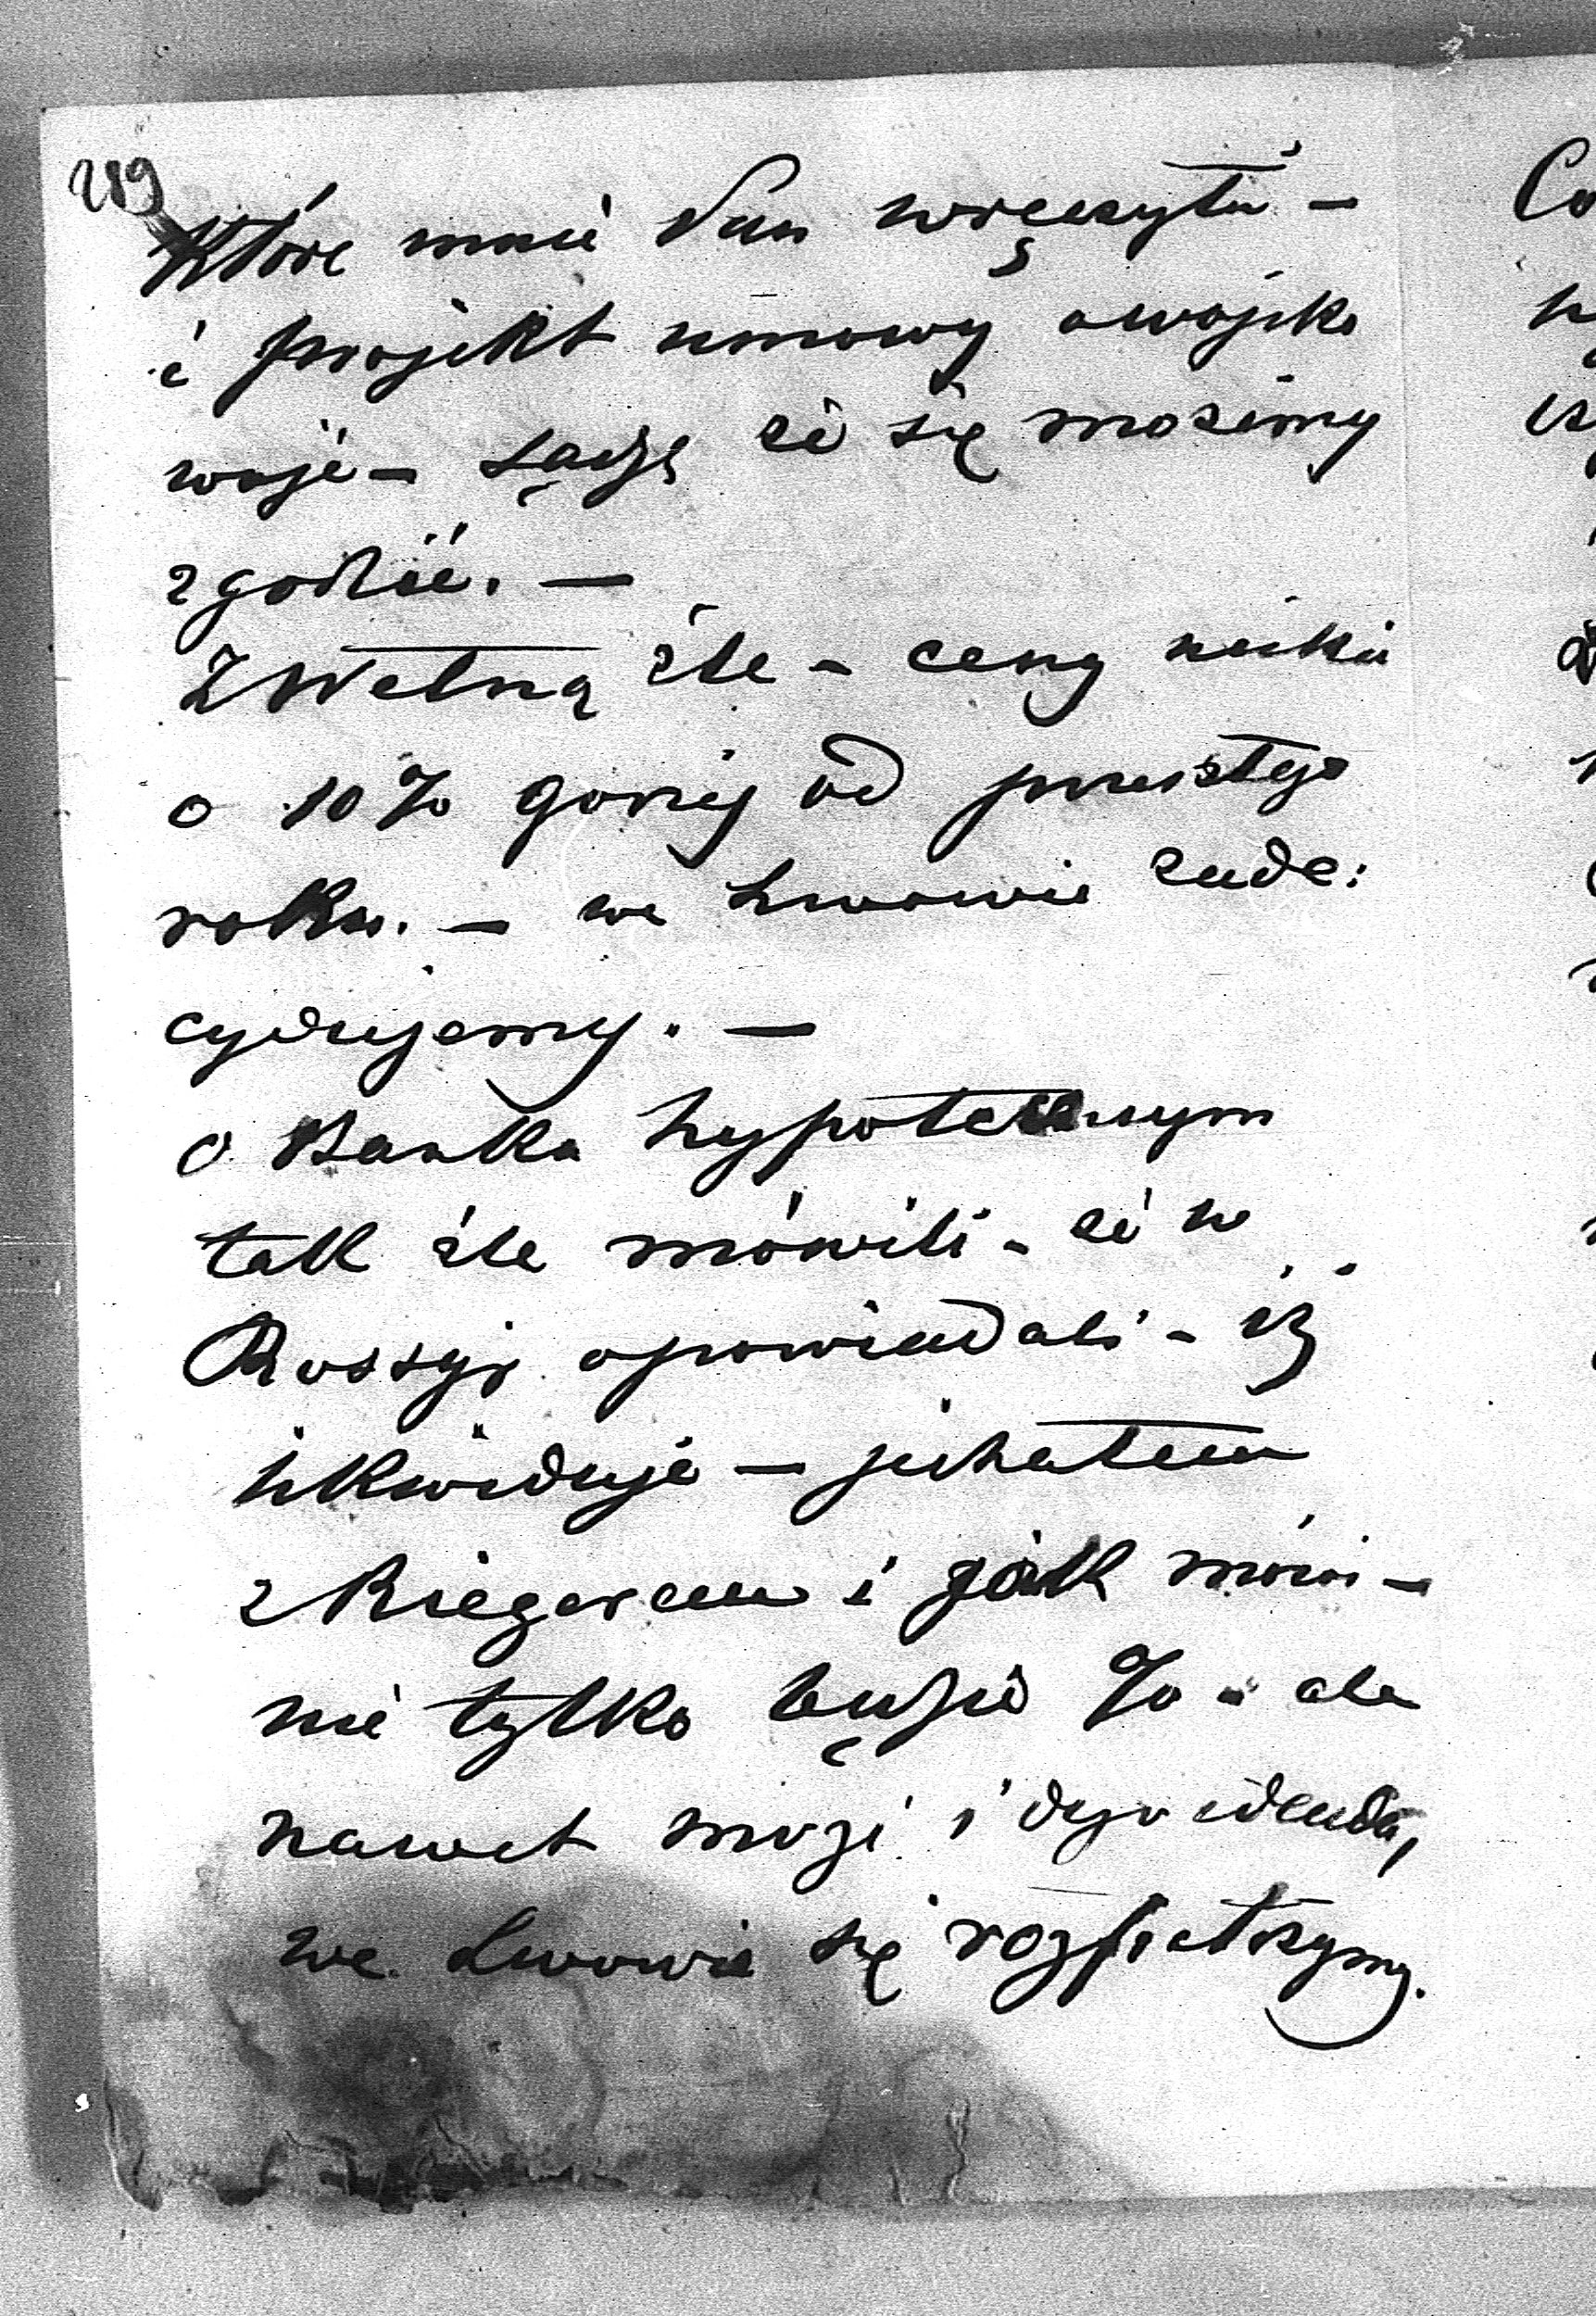 289
Które mnie Pan wręczyłeś -
i projekt umowy
waje - sądzę że się możemy
zgodzić. -
Z Wełną źle - ceny niskie
o 10% gorzej od przeszłego
roku. - we Lwowie zade:
cydujemy. -
O Banku hypotecznym
tak źle mówili - że w
Rossyi opowiadali - iż
likwiduje - jechałem
z Riegerem i jak mówi -
nie tylko będzie % - ale
nawet może i dywidenda,
we Lwowie się rozpatrzymy.